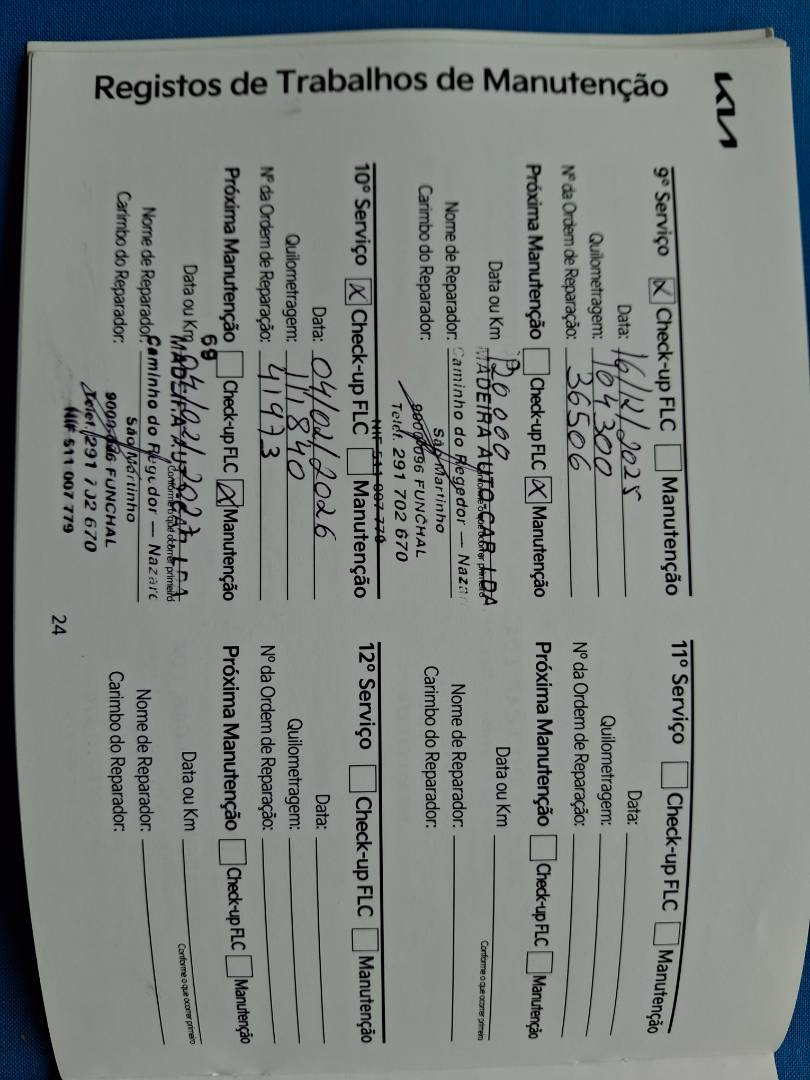 Registos de Trabalhos de Manutenção
KIA
9º Serviço X Check-up FLC Manutenção
Data: 16/12/2025
Quilometragem: 104300
Nº da Ordem de Reparação: 36506
Próxima Manutenção Check-up FLC X Manutenção
Data ou Km 120000
MADEIRA AUTO-CAR LDA
Nome de Reparador: Caminho do Regedor — Nazar
Carimbo do Reparador: São Martinho
9000-096 FUNCHAL
Telef. 291 702 670
NIF 511 007 779
10º Serviço X Check-up FLC Manutenção
Data: 04/02/2026
Quilometragem: 111840
Nº da Ordem de Reparação: 41973
Próxima Manutenção Check-up FLC X Manutenção
69
Data ou Km 04/02/2027
Conforme o que ocorrer primeiro
MADEIRA AUTO-CAR LDA
Nome de Reparador: Caminho do Regedor — Nazaré
Carimbo do Reparador: São Martinho
9000-096 FUNCHAL
Telef. 291 702 670
NIF 511 007 779
11º Serviço Check-up FLC Manutenção
Data:
Quilometragem:
Nº da Ordem de Reparação:
Próxima Manutenção Check-up FLC Manutenção
Data ou Km
Conforme o que ocorrer primeiro
Nome de Reparador:
Carimbo do Reparador:
12º Serviço Check-up FLC Manutenção
Data:
Quilometragem:
Nº da Ordem de Reparação:
Próxima Manutenção Check-up FLC Manutenção
Data ou Km
Conforme o que ocorrer primeiro
Nome de Reparador:
Carimbo do Reparador:
24